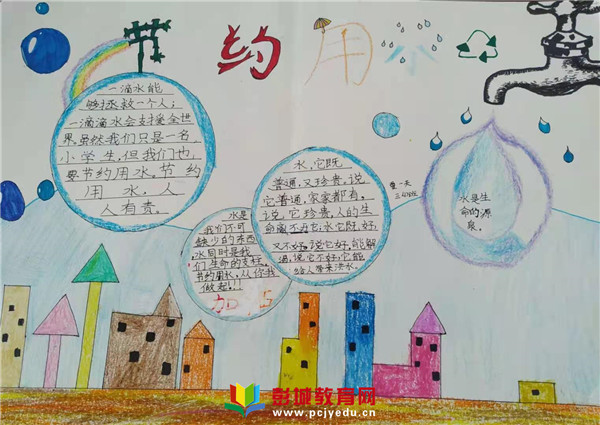 节约用水
一滴水能
够拯救一个人；
一滴滴水会支援全世
界。虽然我们只是一名
小学生，但我们也
要节约用水，节约
用水，人
人有责。
水是
我们不可
缺少的东西
水同时是我
们生命的支柱，
节约用水，从你我
做起!!!
水，它既
普通，又珍贵。说
它普通，家家都有。
说它珍贵，人的生
命离不开它；水它既好，
又不好。说它好，能解
渴，说它不好，它能
给人带来洪水。
水是生
命的源
泉。
彭城教育网
www.pcjyedu.cn